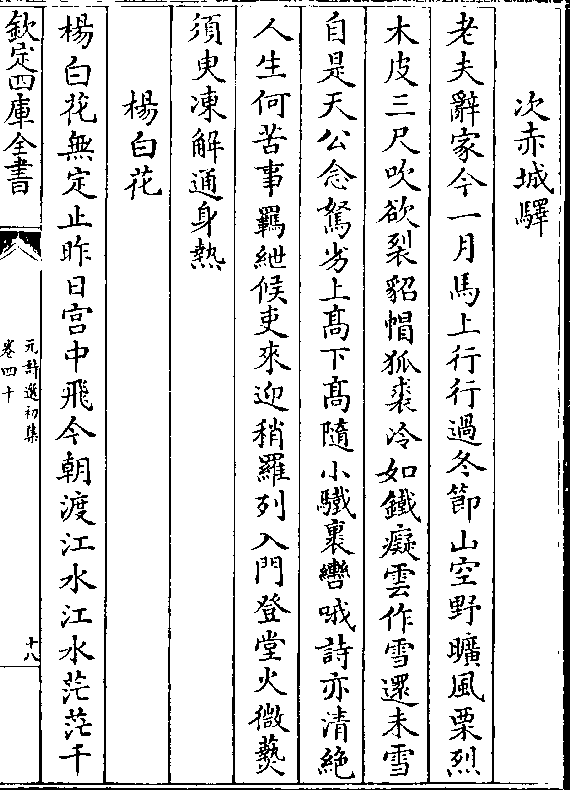 次赤城驛
老夫辭家今一月馬上行行過冬節山空野曠風栗烈
木皮三尺吹欲裂貂帽狐裘冷如鐵癡雲作雪還未雪
自是天公念駑劣上髙下髙隨小驖裹轡哦詩亦清絶
人生何苦事羈紲候吏來迎稍羅列入門登堂火微爇
須臾凍解通身熱
楊白花
楊白花無定止昨日宫中飛今朝渡江水江水茫茫千
欽定四庫全書
元詩選初集
卷四十
十八